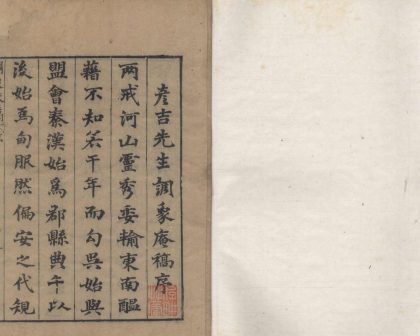 彦吉先生調象庵稿序
两戒河山靈秀委輸東南醖
藉不知若干年而勾吳始與
盟會秦漢始爲郡縣典午以
後始爲甸服然偏安之代規